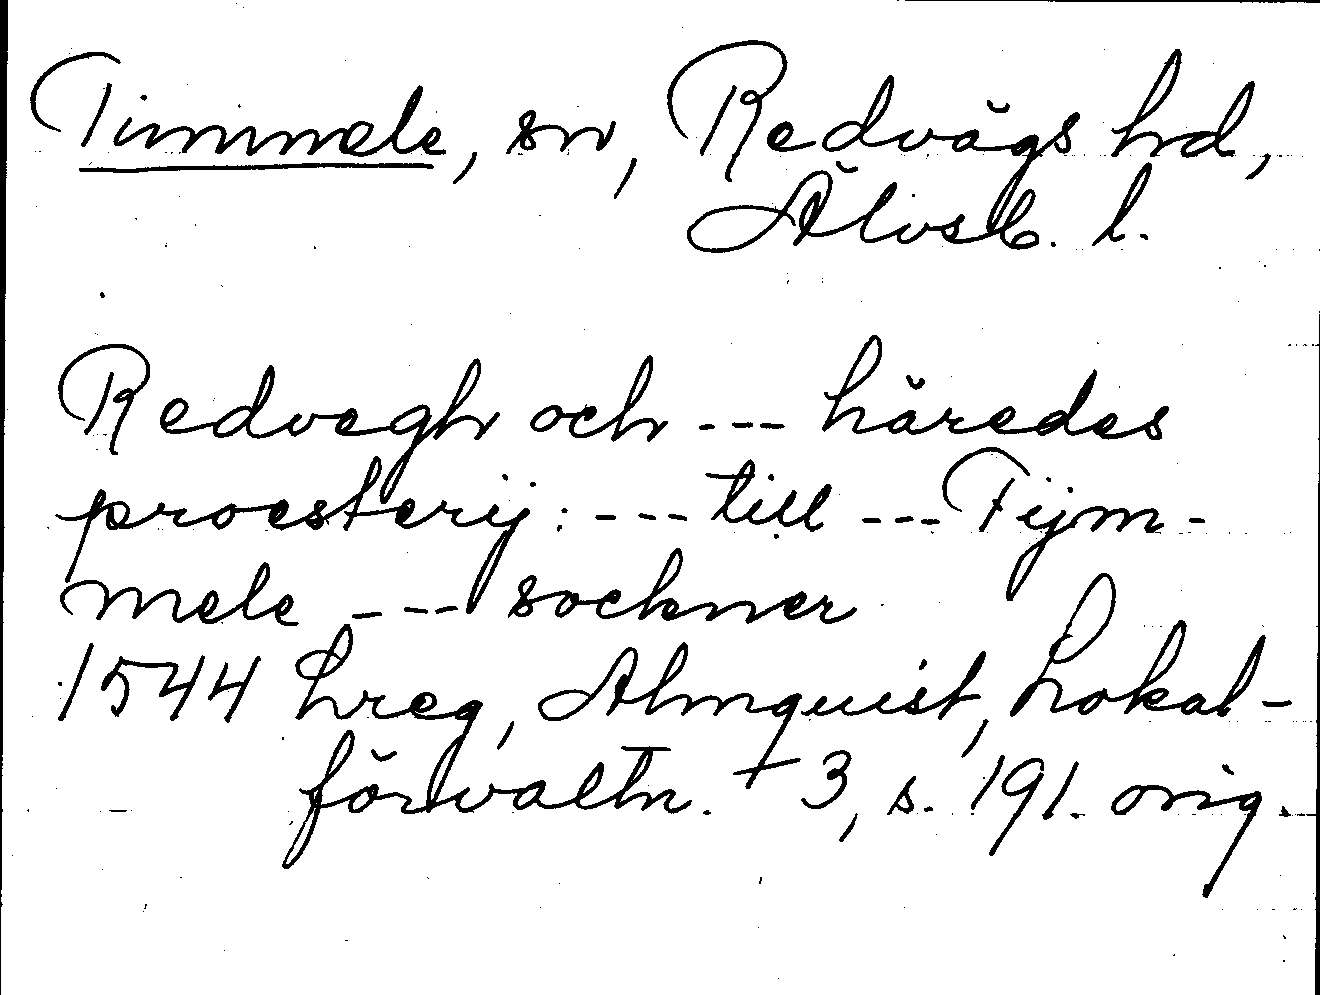 Timmele, sn, Redvägs hd,
Älvsb. l.
Redvegh och --- häredes
proesterij: --- till --- Tijm-
mele --- sockner
1544 hreg, Almquist, Lokal-
förvaltn. + 3, s. 191. orig.